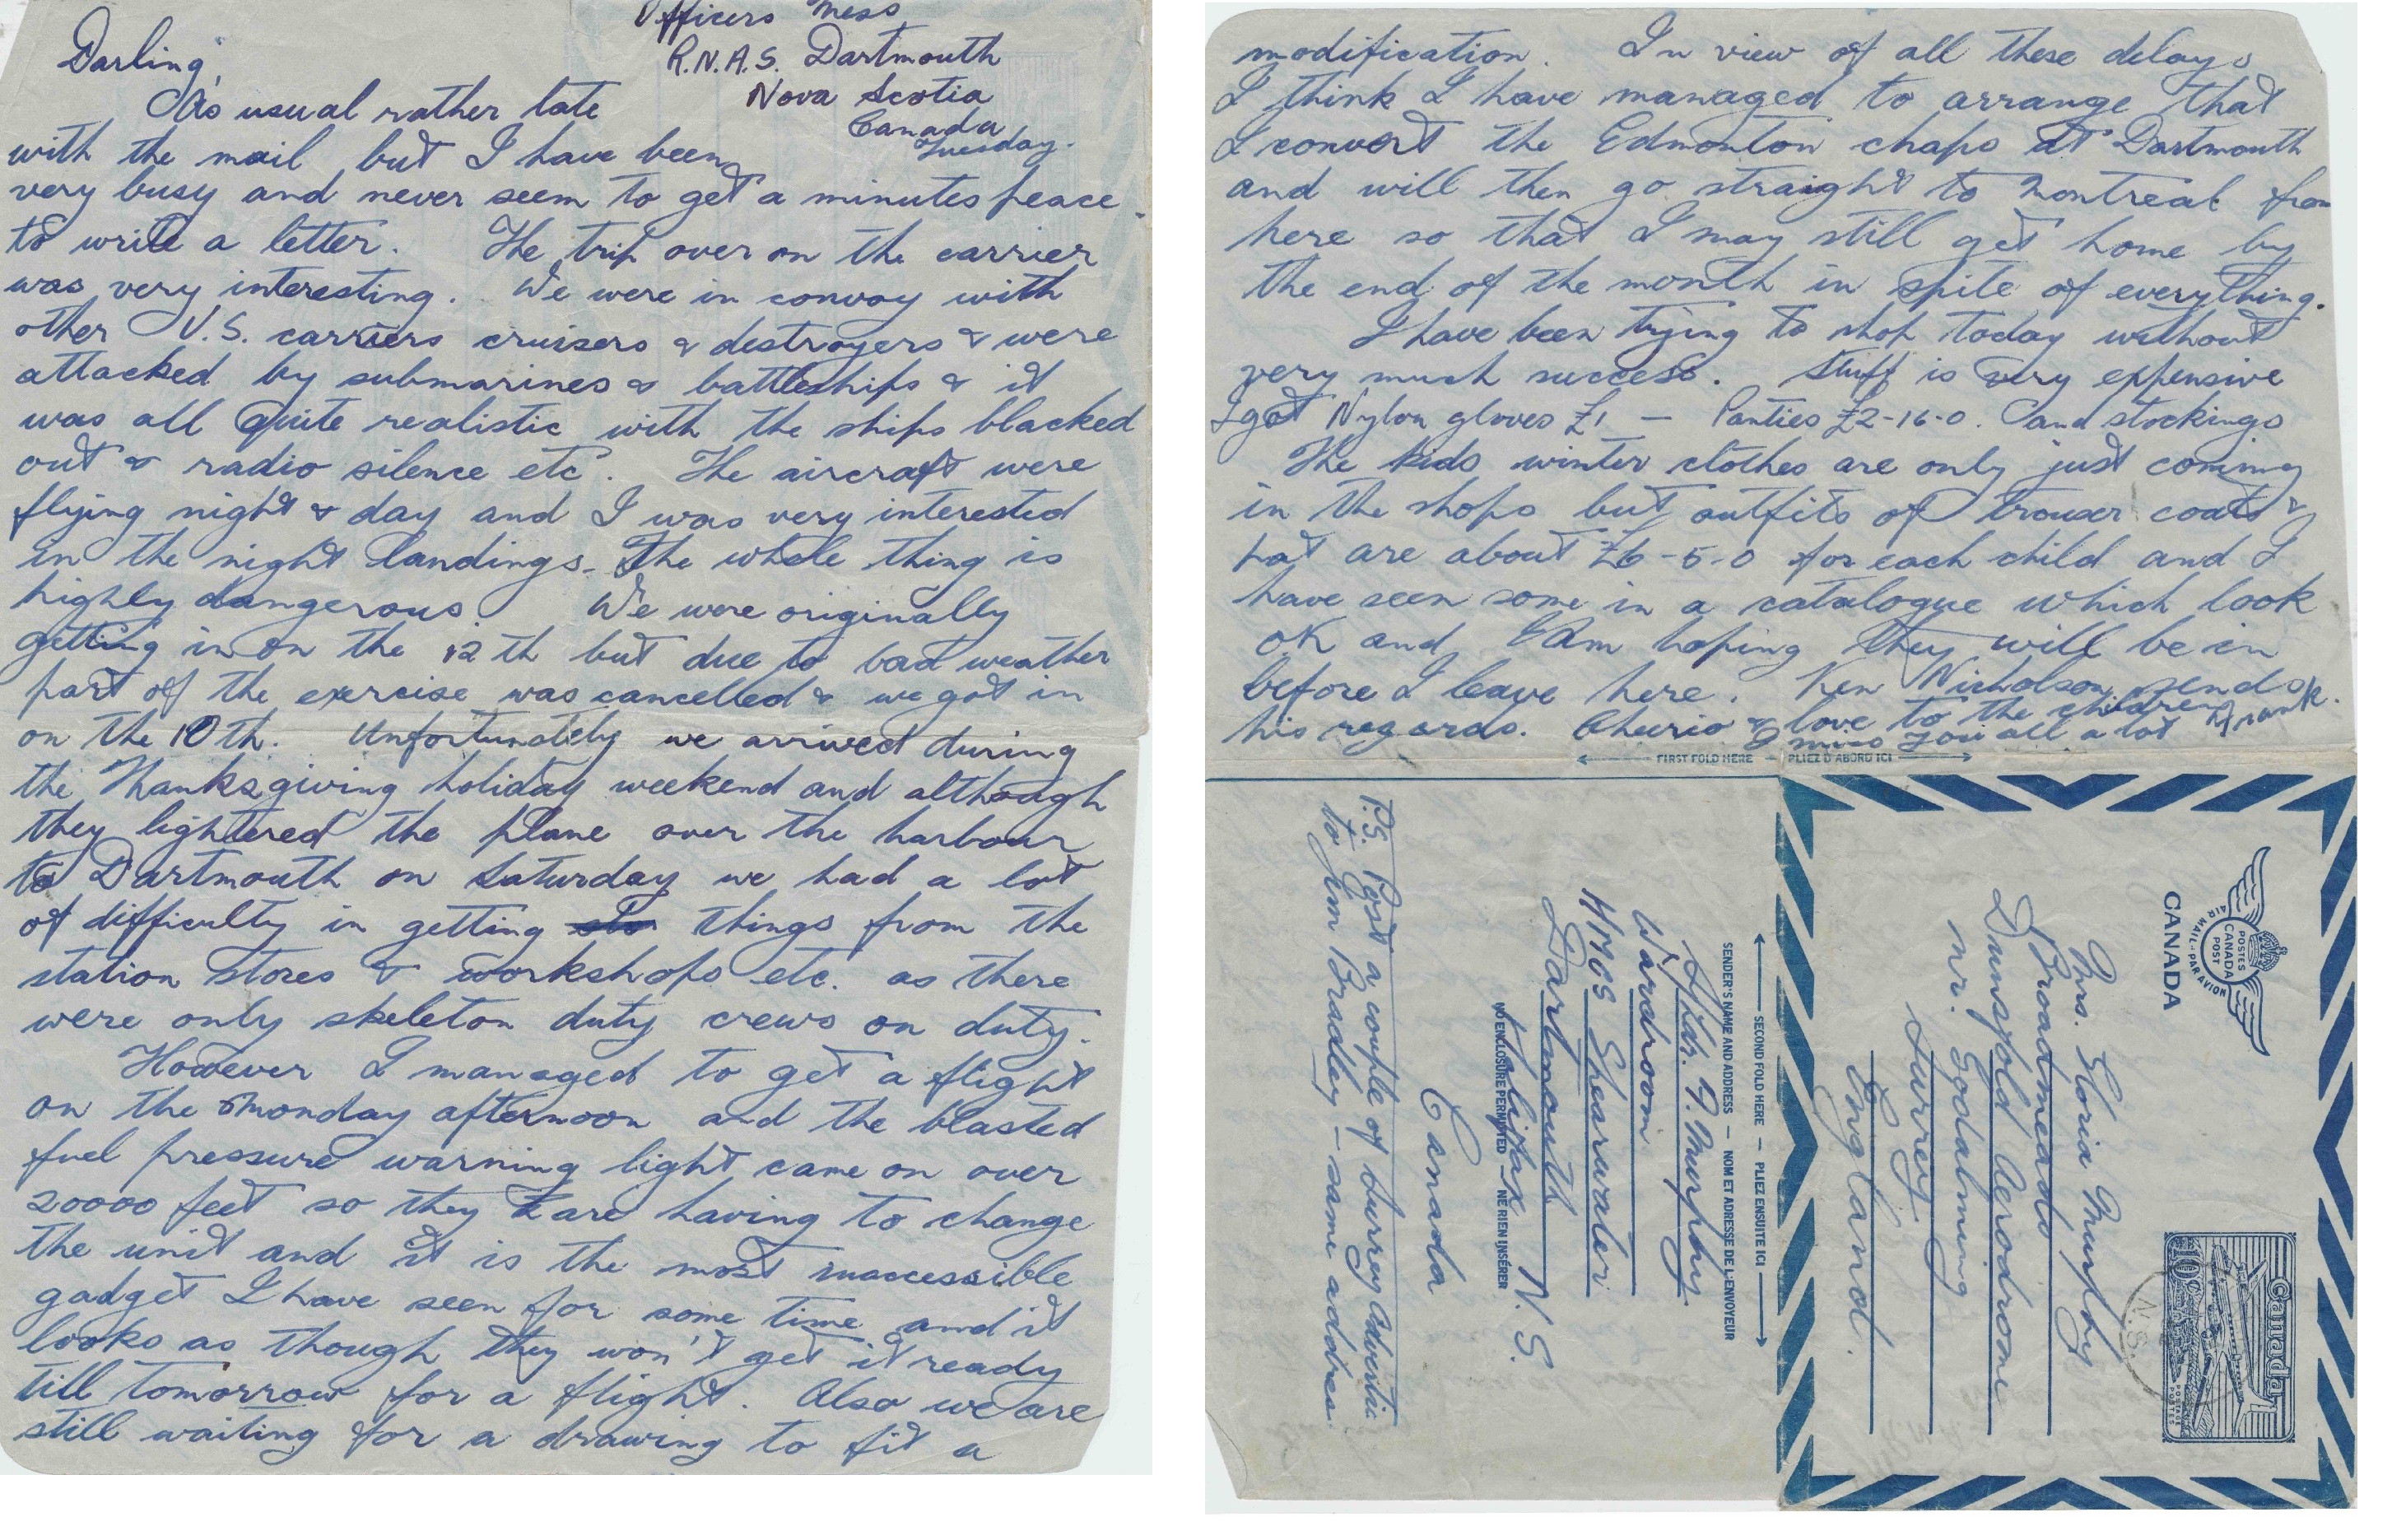 Officers Mess
R.N.A.S. Dartmouth
Nova Scotia
Canada
Tuesday.
Darling,
As usual rather late
with the mail but I have been
very busy and never seem to get a minutes peace
to write a letter. The trip over on the carrier
was very interesting. We were in convoy with
other U.S. carriers cruisers & destroyers & were
attacked by submarines & battleships & it
was all quite realistic with the ships blacked
out & radio silence etc. The aircraft were
flying night & day and I was very interested
in the night landings. The whole thing is
highly dangerous. We were originally
getting in on the 12th but due to bad weather
part of the exercise was cancelled & we got in
on the 10th. Unfortunately we arrived during
the Thanksgiving holiday weekend and although
they lightered the plane over the harbour
to Dartmouth on Saturday we had a lot
of difficulty in getting things from the
station stores & workshops etc. as there
were only skeleton duty crews on duty.
However I managed to get a flight
on the Monday afternoon and the blasted
fuel pressure warning light came on over
20000 feet so they are having to change
the unit and it is the most inaccessible
gadget I have seen for some time and it
looks as though they won't get it ready
till tomorrow for a flight. Also we are
still waiting for a drawing to fit a
modification. In view of all these delays
I think I have managed to arrange that
I convert the Edmonton chaps at Dartmouth
and will then go straight to Montreal from
here so that I may still get home by
the end of the month in spite of everything.
I have been trying to shop today without
very much success. Stuff is very expensive
I got Nylon gloves £1 — Panties £2-16-0. and stockings
The kids winter clothes are only just coming
in the shops but outfits of trouser coats &
hat are about £6-5-0 for each child and I
have seen some in a catalogue which look
OK and I am hoping they will be in
before I leave here. Ken Nicholson sends
his regards. Cheerio & love to the children
I miss you all a lot Frank.
FIRST FOLD HERE — PLIEZ D'ABORD ICI
P.S. Post a couple of Surrey Advertis
to Jim Bradley — same address.
NO ENCLOSURE PERMITTED — NE RIEN INSÉRER
S/Ldr. F. Murphy
Wardroom
HMCS Shearwater
Dartmouth N.S.
Halifax
Canada
SENDER'S NAME AND ADDRESS — NOM ET ADRESSE DE L'ENVOYEUR
SECOND FOLD HERE — PLIEZ ENSUITE ICI
CANADA
AIR MAIL-PAR AVION
POSTES CANADA POST
Canada
10¢
POSTAGE
POSTES
N.S.
Mrs. Gloria Murphy
Broadmeads
Dunsfold Aerodrome
nr. Godalming
Surrey
England.